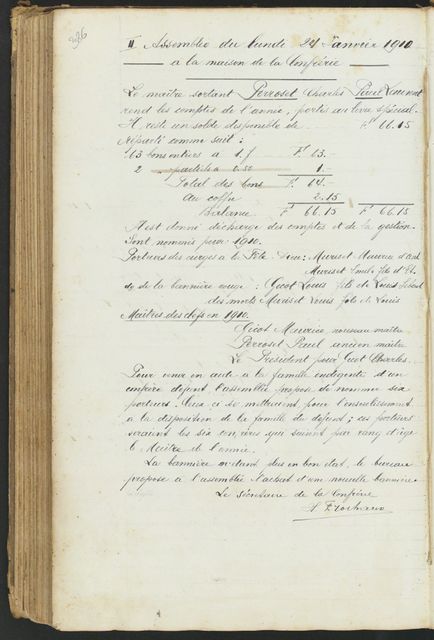 336
II. Assemblée du lundi 24 Janvier 1910
à la maison de la Confrérie
Le maître sortant Perroset Charles
rend les comptes de l'année, portés au livre spécial.
Il reste un solde disponible de Fr 66.15
réparti comme suit :
63 bons entiers à 1.f Fr 63.-
2 " partiels à 0.50 1.-
Total des bons Fr 64.-
au coffre 2.15
Balance Fr 66.15 Fr 66.15
Il est donné décharge des comptes et de la gestion.
Sont nommés pour 1910.
Porteurs des cierges à la Fête Dieu: Muriset Maurice
Muriset Emile fils d'
de la bannière rouge : Gicot Louis fils de Louis
des morts Muriset Louis fils de Louis
Maîtres des clefs en 1910.
Gicot Maurice nouveau maître
Perroset Paul ancien maître
Le Président pour Gicot Charles.
Pour venir en aide à la famille indigente d'un
confrère défunt l'assemblée propose de nommer six
porteurs. Ceux-ci se mettraient pour l'ensevelissement
à la disposition de la famille du défunt ; ces porteurs
seraient les six confrères qui suivent par rang d'âge
le Maître de l'année.
La bannière n'étant plus en bon état, le bureau
propose à l'assemblée l'achat d'une nouvelle bannière.
Le Secrétaire de la Confrérie